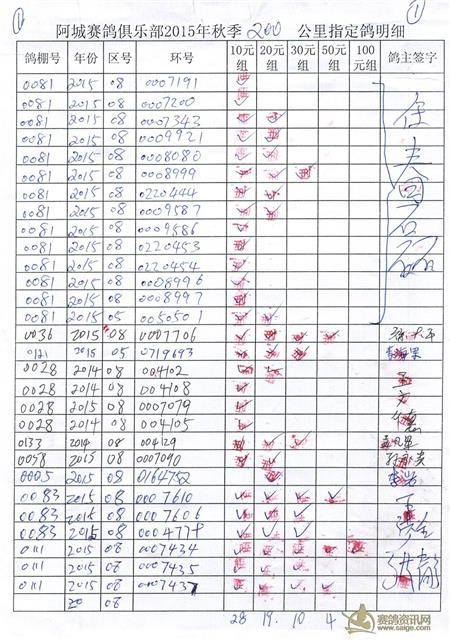 ① ①
阿城赛鸽俱乐部2015年秋季 200 公里指定鸽明细
鸽棚号 年份 区号 环号 10元组 20元组 30元组 50元组 100元组 鸽主签字
0081 2015 08 0007191 ✓
0081 2015 08 0007200 ✓
0081 2015 08 0007343 ✓ ✓
0081 2015 08 0009921 ✓ ✓
0081 2015 08 0008080 ✓ ✓
0081 2015 08 0008999 ✓ ✓ ✓
0081 2015 08 0220444 ✓ ✓
0081 2015 08 0009587 ✓ ✓
0081 2015 08 0009586 ✓
0081 2015 08 0220453 ✓
0081 2015 08 0220454 ✓
0081 2015 08 0008996 ✓
0081 2015 08 0008997 ✓
0081 2015 08 0050501 ✓ ✓
0036 2015 08 0007706 ✓ ✓ ✓ ✓
0121 2015 05 0719693 ✓ ✓ ✓
0028 2014 08 004102 ✓ ✓
0028 2014 08 004108 ✓
0028 2015 08 0007079 ✓
0028 2014 08 004105 ✓
0133 2014 08 004129 ✓ ✓ ✓
0058 2015 08 0007090 ✓ ✓
0005 2015 08 0164752 ✓
0083 2015 08 0007610 ✓ ✓ ✓ ✓
0083 2015 08 0007606 ✓ ✓ ✓
0083 2015 08 000477 ✓ ✓ ✓
0111 2015 08 0007434 ✓ ✓ ✓ ✓ ✓
0111 2015 08 0007435 ✓ ✓ ✓
0111 2015 08 0007437 ✓ ✓ ✓ ✓
20 08
28 19. 10 4
赛鸽资讯网
www.saige.com